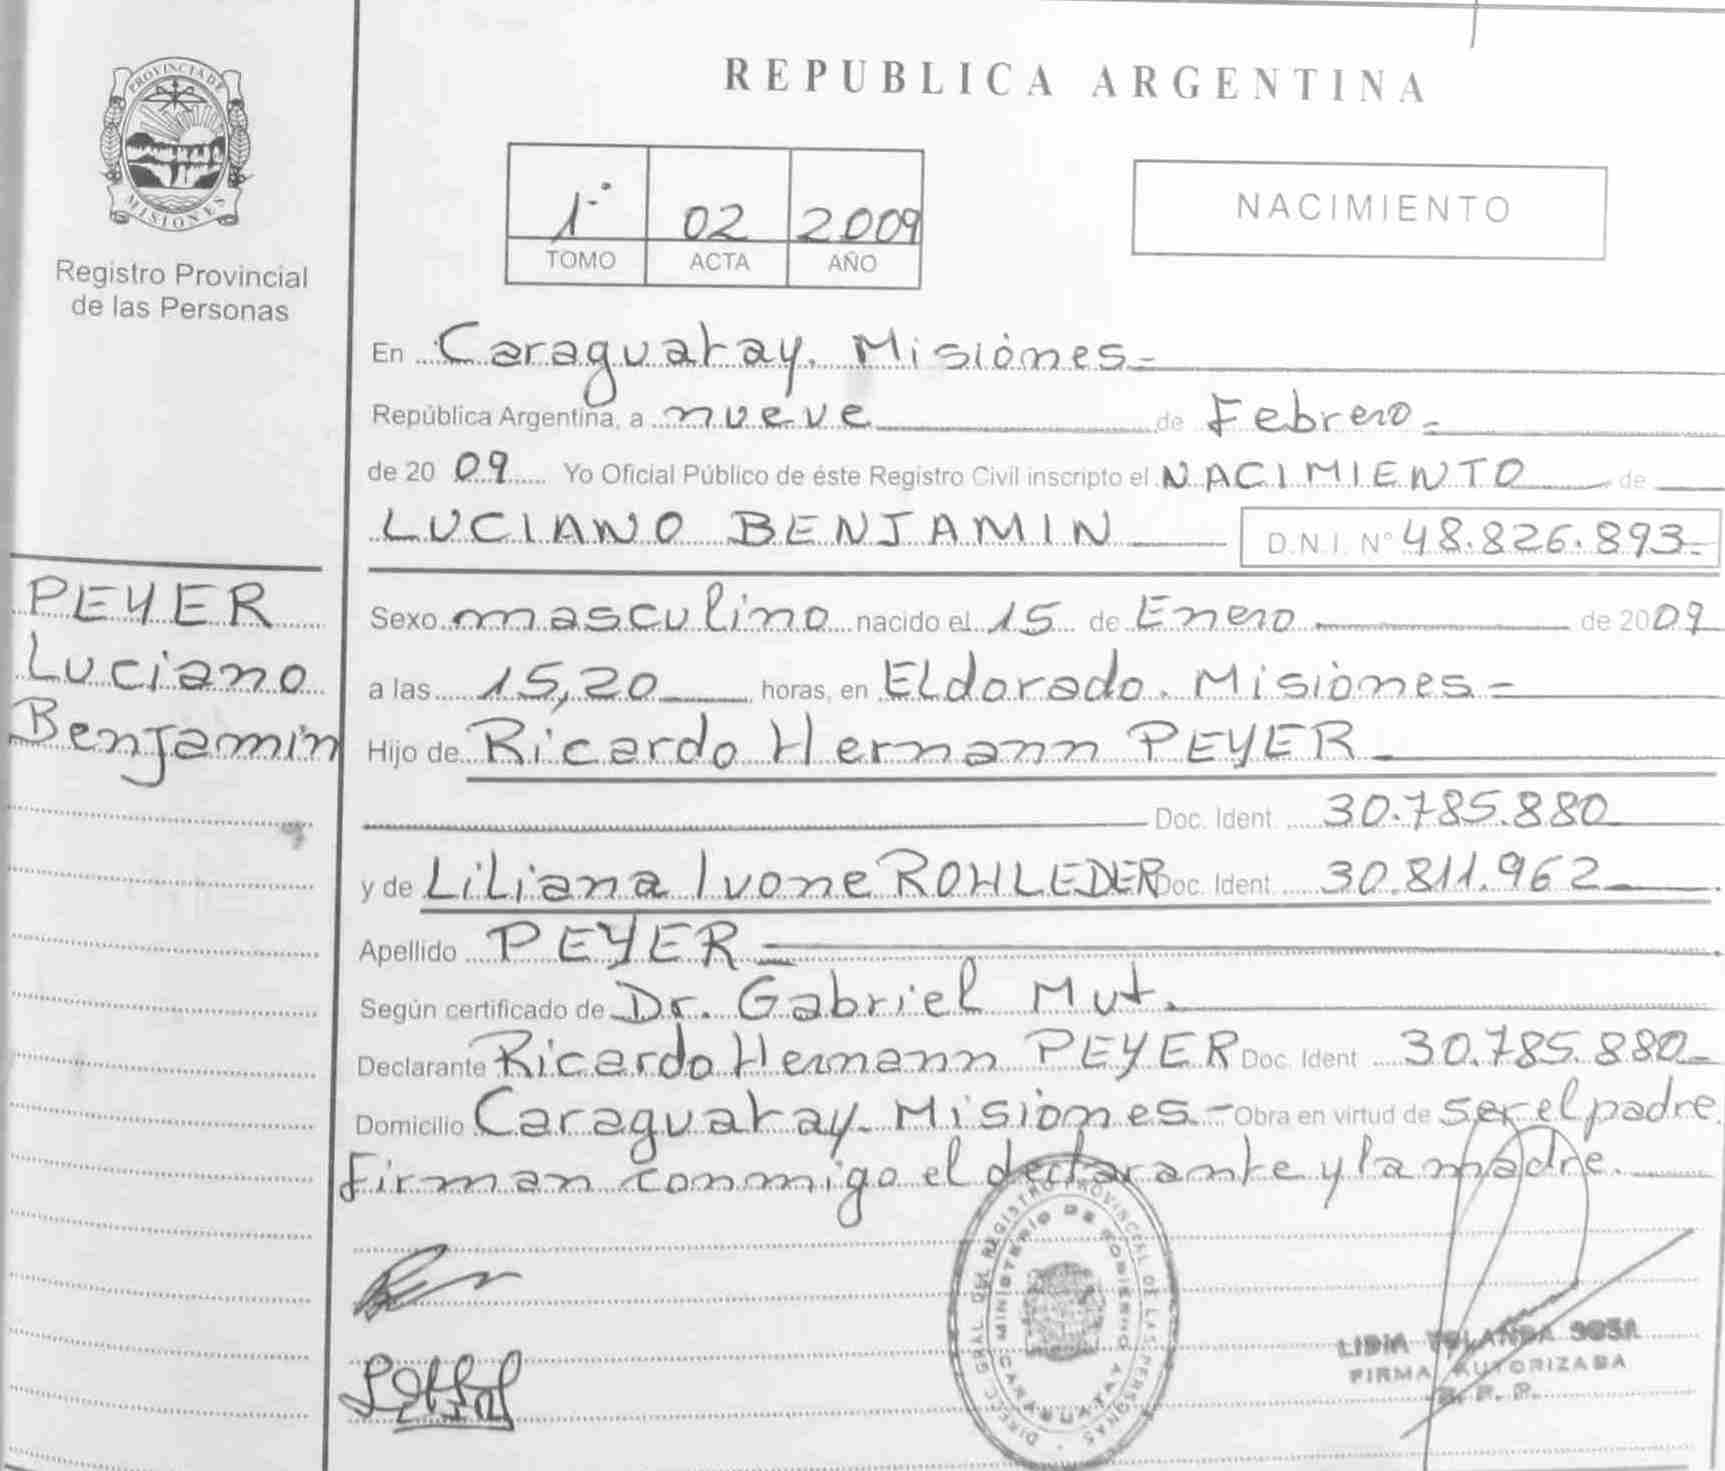 REPUBLICA ARGENTINA
PROVINCIA DE
MISIONES
Registro Provincial
de las Personas
1° 02 2009
TOMO ACTA AÑO
NACIMIENTO
En Caraguatay. Misiones
República Argentina, a nueve de Febrero
de 20 09 Yo Oficial Público de éste Registro Civil inscripto el NACIMIENTO de
LUCIANO BENJAMIN D.N.I. N° 48.826.893
PEYER
Luciano
Benjamin
Sexo masculino nacido el 15 de Enero de 2009
a las 15,20 horas, en Eldorado. Misiones
Hijo de Ricardo Hermann PEYER
Doc. Ident 30.785.880
y de Liliana Ivone ROHLEDER Doc. Ident 30.811.962
Apellido PEYER
Según certificado de Dr. Gabriel Mut.
Declarante Ricardo Hermann PEYER Doc. Ident 30.785.880
Domicilio Caraguatay. Misiones - Obra en virtud de ser el padre.
Firman conmigo el declarante y la madre.
DIREC. GRAL. DEL REGISTRO PROVINCIAL DE LAS PERSONAS
MINISTERIO DE GOBIERNO
CARAGUATAY
LIDIA YOLANDA SOSA
FIRMA AUTORIZADA
R. P. P.